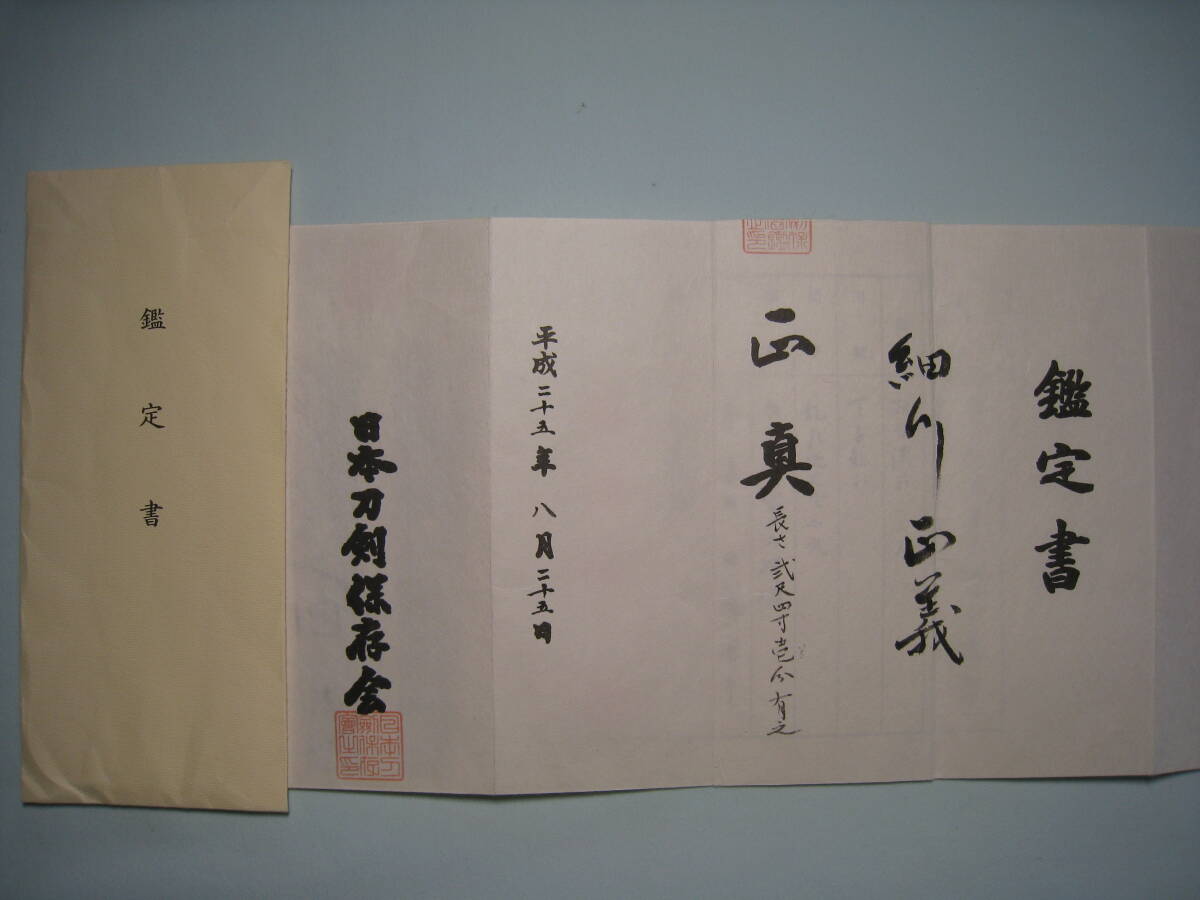 鑑定書
細川 正義
正真
長さ 弐尺四寸壱分有之
平成二十五年 八月二十五日
日本刀剣保存会
鑑定書